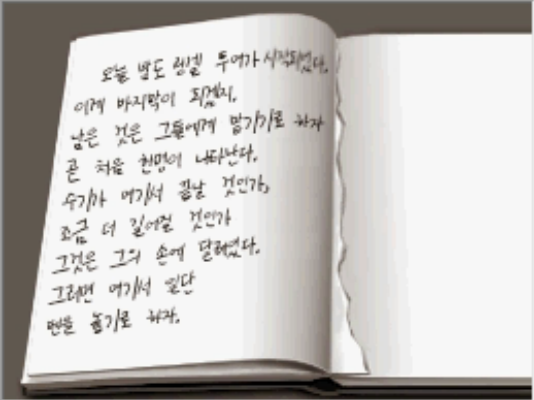 오늘 밤도 터널 투어가 시작되었다.
이게 마지막이 되겠지.
남은 것은 그들에게 맡기기로 하자
곧 처음 한명이 나타난다.
수기가 여기서 끝날 것인가,
조금 더 길어질 것인가
그것은 그의 손에 달려있다.
그러면 여기서 일단
펜을 놓기로 하자.